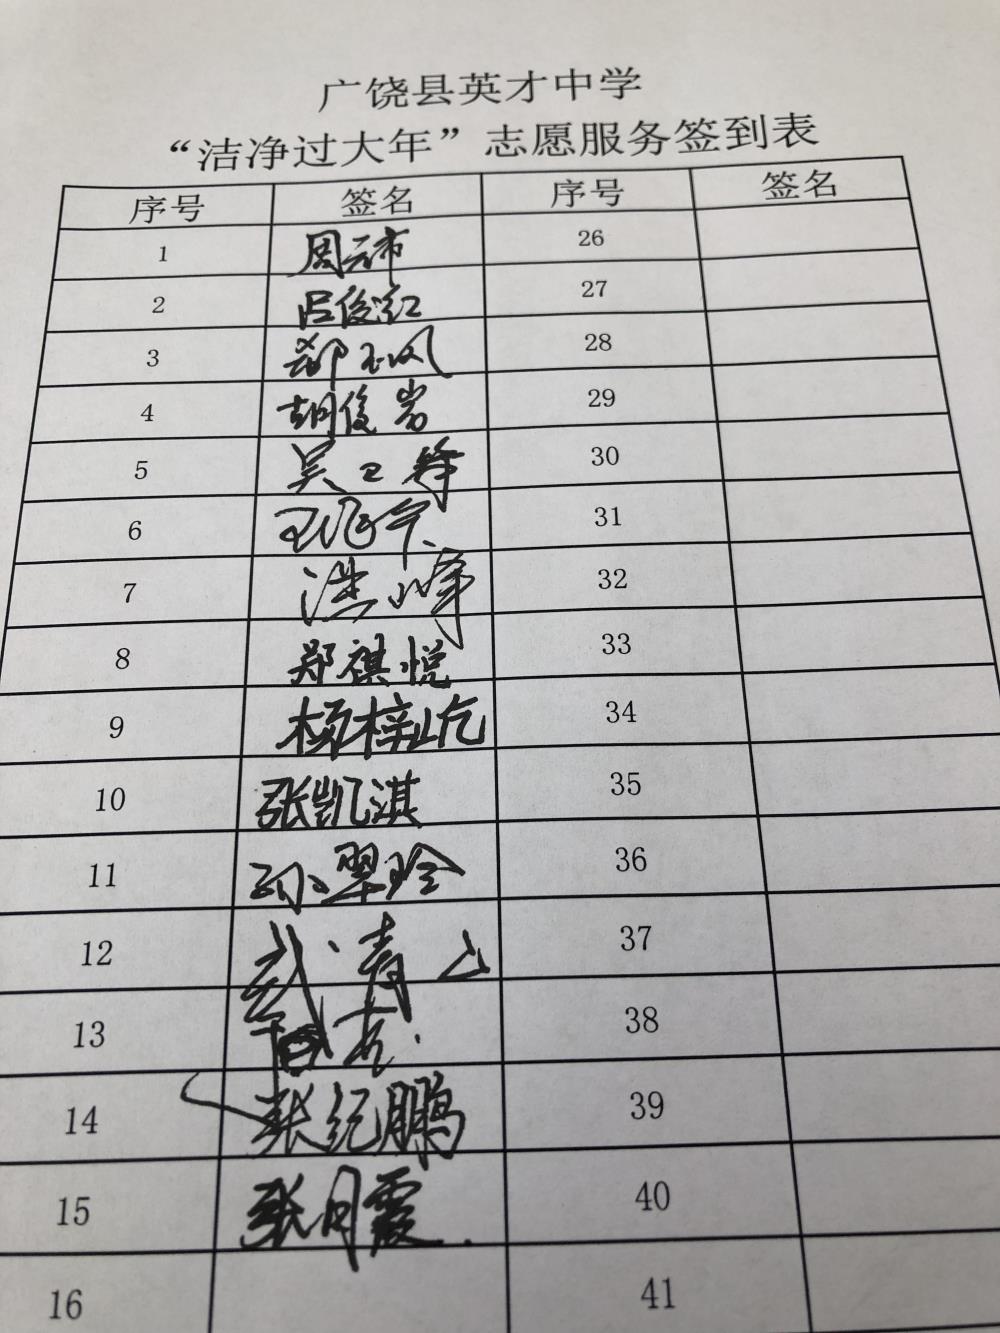 广饶县英才中学
“洁净过大年”志愿服务签到表
序号 签名 序号 签名
1 周云市 26
2 吕俊红 27
3 郑玉凤 28
4 胡俊岩 29
5 吴 30
6 31
7 洪峰 32
8 郑祺悦 33
9 杨梓屹 34
10 张凯淇 35
11 孙翠玲 36
12 武青山 37
13 38
14 张纪鹏 39
15 张月霞 40
16 41